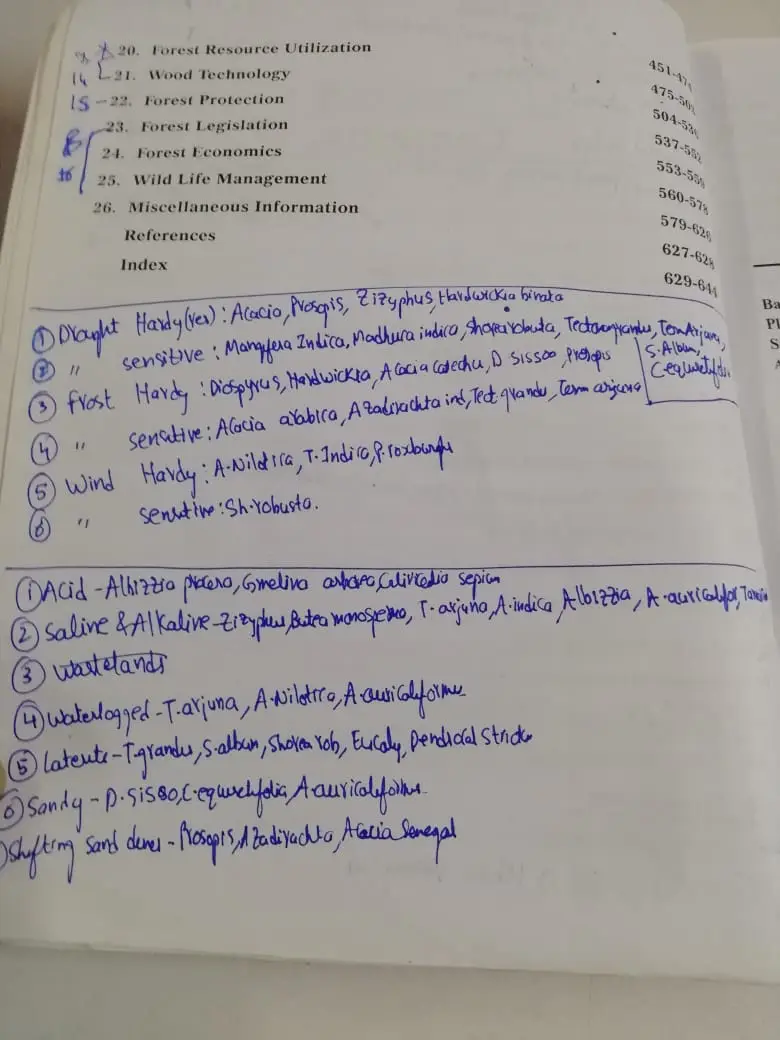 20. Forest Resource Utilization 451-474
14 21. Wood Technology 475-503
15 - 22. Forest Protection 504-536
23. Forest Legislation 537-552
24. Forest Economics 553-559
16 25. Wild Life Management 560-578
26. Miscellaneous Information 579-626
References 627-628
Index 629-644
① Drought Hardy(res) : Acacia, Prosopis, Zizyphus, Hardwickia binata
② " sensitive : Mangifera Indica, Madhura indica, Shorea robusta, Tectona grandis, Term Arjuna,
S. Album,
C equisetifolia
③ Frost Hardy : Diospyrus, Hardwickia, Acacia catechu, D sissoo, Prosopis
④ " sensitive : Acacia arabica, Azadirachta ind, Tect grandis, Term arjuna
⑤ Wind Hardy : A. Nilotica, T. Indica, P. roxburghi
⑥ " sensitive : Sh. robusta.
① Acid - Albizzia procera, Gmelina arborea, Gliricedia sepium
② Saline & Alkaline - Zizyphus, Butea monosperma, T. arjuna, A. indica, Albizzia, A. auriculifor,
③ Wastelands
④ Waterlogged - T. arjuna, A. Nilotica, A. auriculiformis
⑤ Laterite - T. grandis, S. album, Shorea rob, Eucaly, Dendrocal Strictu
⑥ Sandy - D. Sisoo, C. equisetifolia, A. auriculiformis.
Shifting sand dunes - Prosopis, Azadirachta, Acacia Senegal
Ba
Pl
S